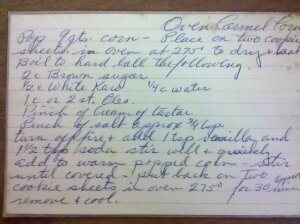 Oven Carmel Corn
Pop 9 qts. corn - Place on two cookie
sheets in oven at 275° to dry & heat
Boil to hard ball the following.
2 c Brown sugar
1/2 c White Karo 1/4 c water
1 c or 2 st. Oleo.
Pinch of cream of tartar
Pinch of salt approx 3/4 tsp.
turn off fire & add 1 tsp. vanilla, and
1 1/2 tsp soda stir well & quickly
add to warm popped corn - stir
until covered - put back on two
cookie sheets in oven 275° for 30 min approx
remove & cool.